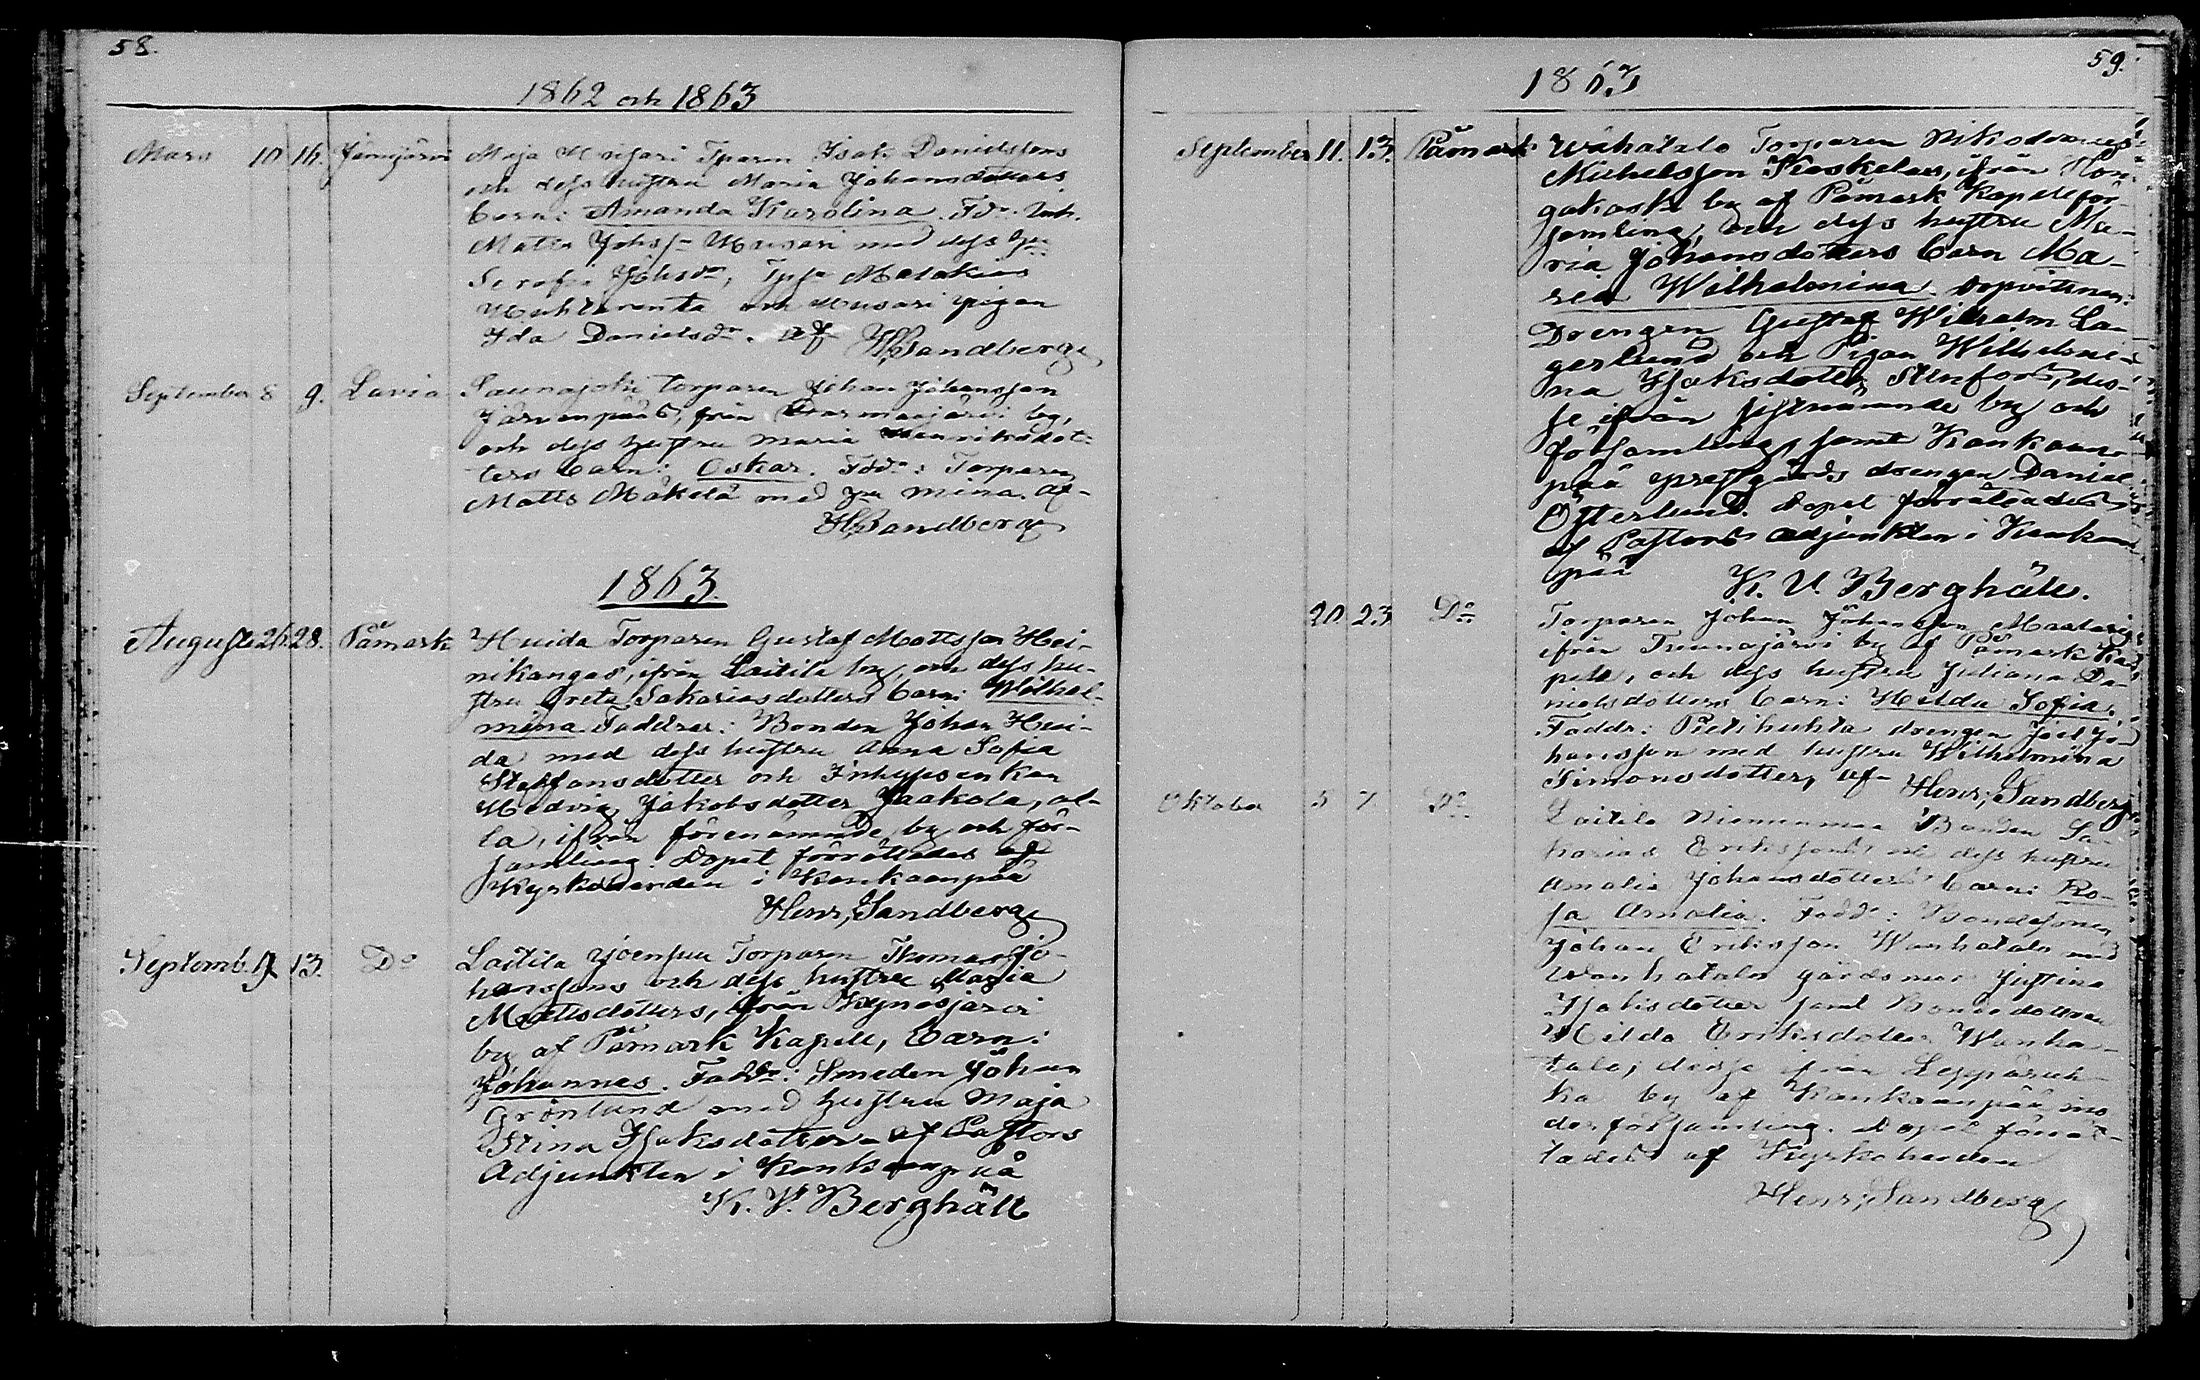 58.
1862 och 1863
Mars 10 16. Jämijärvi Maja Musari Tparen Isak Danielssons
och dess hustru Maria Johansdotters
barn: Amanda Karolina. Fdr. Inh.
Matts Johss Musari med dess hu
Serafia Johsdr, Tpss Malakias
och Musari pigan
Ida Danielsdr. af HSandberg
September 8 9. Lavia Saunajoki torparen Johan Johansson
Järvenpää, från Karmaajärvi by,
och dess hustru Maria Henriksdot-
ters barn: Oskar. Fddr: Torparen
Matts Mäkelä med hu Mina. af
HSandberg
1863.
Augusti 26. 28. Påmark Huida Torparen Gustaf Mattsson Hei-
nikangas, ifrån Laitila by, och dess hu-
stru Greta Sakariasdotters barn: Wilhel-
mina. Faddrar: Bonden Johan Hui-
da med dess hustru Anna Sofia
Staffansdotter och Inhysenkan
Hedvig Jakobsdotter Jaakola, al-
la, ifrån förenämnde by och för-
samling. Dopet förrättades af
Kyrkoherden i Kankaanpää
Henr, Sandberg
Septemb. 13. Do Laitila Yoensuu Torparen Thomas Jo-
hanssons och dess hustru Maria
Mattsdotters, ifrån Kynäsjärvi
by af Påmark Kapell, Barn:
Johannes. Faddr: Smeden Johan
Grönlund med hustru Maja
Stina Isaksdotter af Pastors
Adjunkten i Kankaanpää
K. V. Berghäll
59.
1863
September 11. 13. Påmark Wähätalo Torparen Nikodemus
Michelsson Koskelas, ifrån Hon-
gakoski by af Påmark Kapellför-
samling, och dess hustru Ma-
ria Johansdotters barn Ma-
ria Wilhelmina. Dopvittnen:
Drengen Gustaf Wilhelm La-
gerlund och Pigan Wilhelmi-
na Isaksdotter Stenfors, des-
se ifrån sistnämnde by och
församling, samt Kankaan-
pää prestgårds drengen Daniel
Österlund. Dopet förrättades
af Pastors adjunkten i Kankaan-
pää K. V. Berghäll.
20 23 Do Torparen Johan Johansson
ifrån Tuunajärvi by af Påmark Ka-
pell, och dess hustru Juliana Da-
nielsdotters barn: Hilda Sofia.
Faddr: Pietihuhta drengen Joel Jo-
hansson med hustru Wilhelmina
Simonsdotter, af Henr, Sandberg
Oktober 5 7. Do Laitila Niemenmaa Bonden Sa-
karias Erikssons och dess hustru
Amalia Johansdotters barn: Ro-
sa Amalia. Fadd: Bondesonen
Johan Eriksson Wanhatalo med
Wanhatalo gårds mor Justina
Isaksdotter samt Bondedottren
Hilda Eriksdotter Wanha-
talo; desse ifrån Leppäruh-
ka by af Kankaanpää mo
derförsamling. Dopet förrät-
tades af Kyrkoherden
Henr, Sandberg